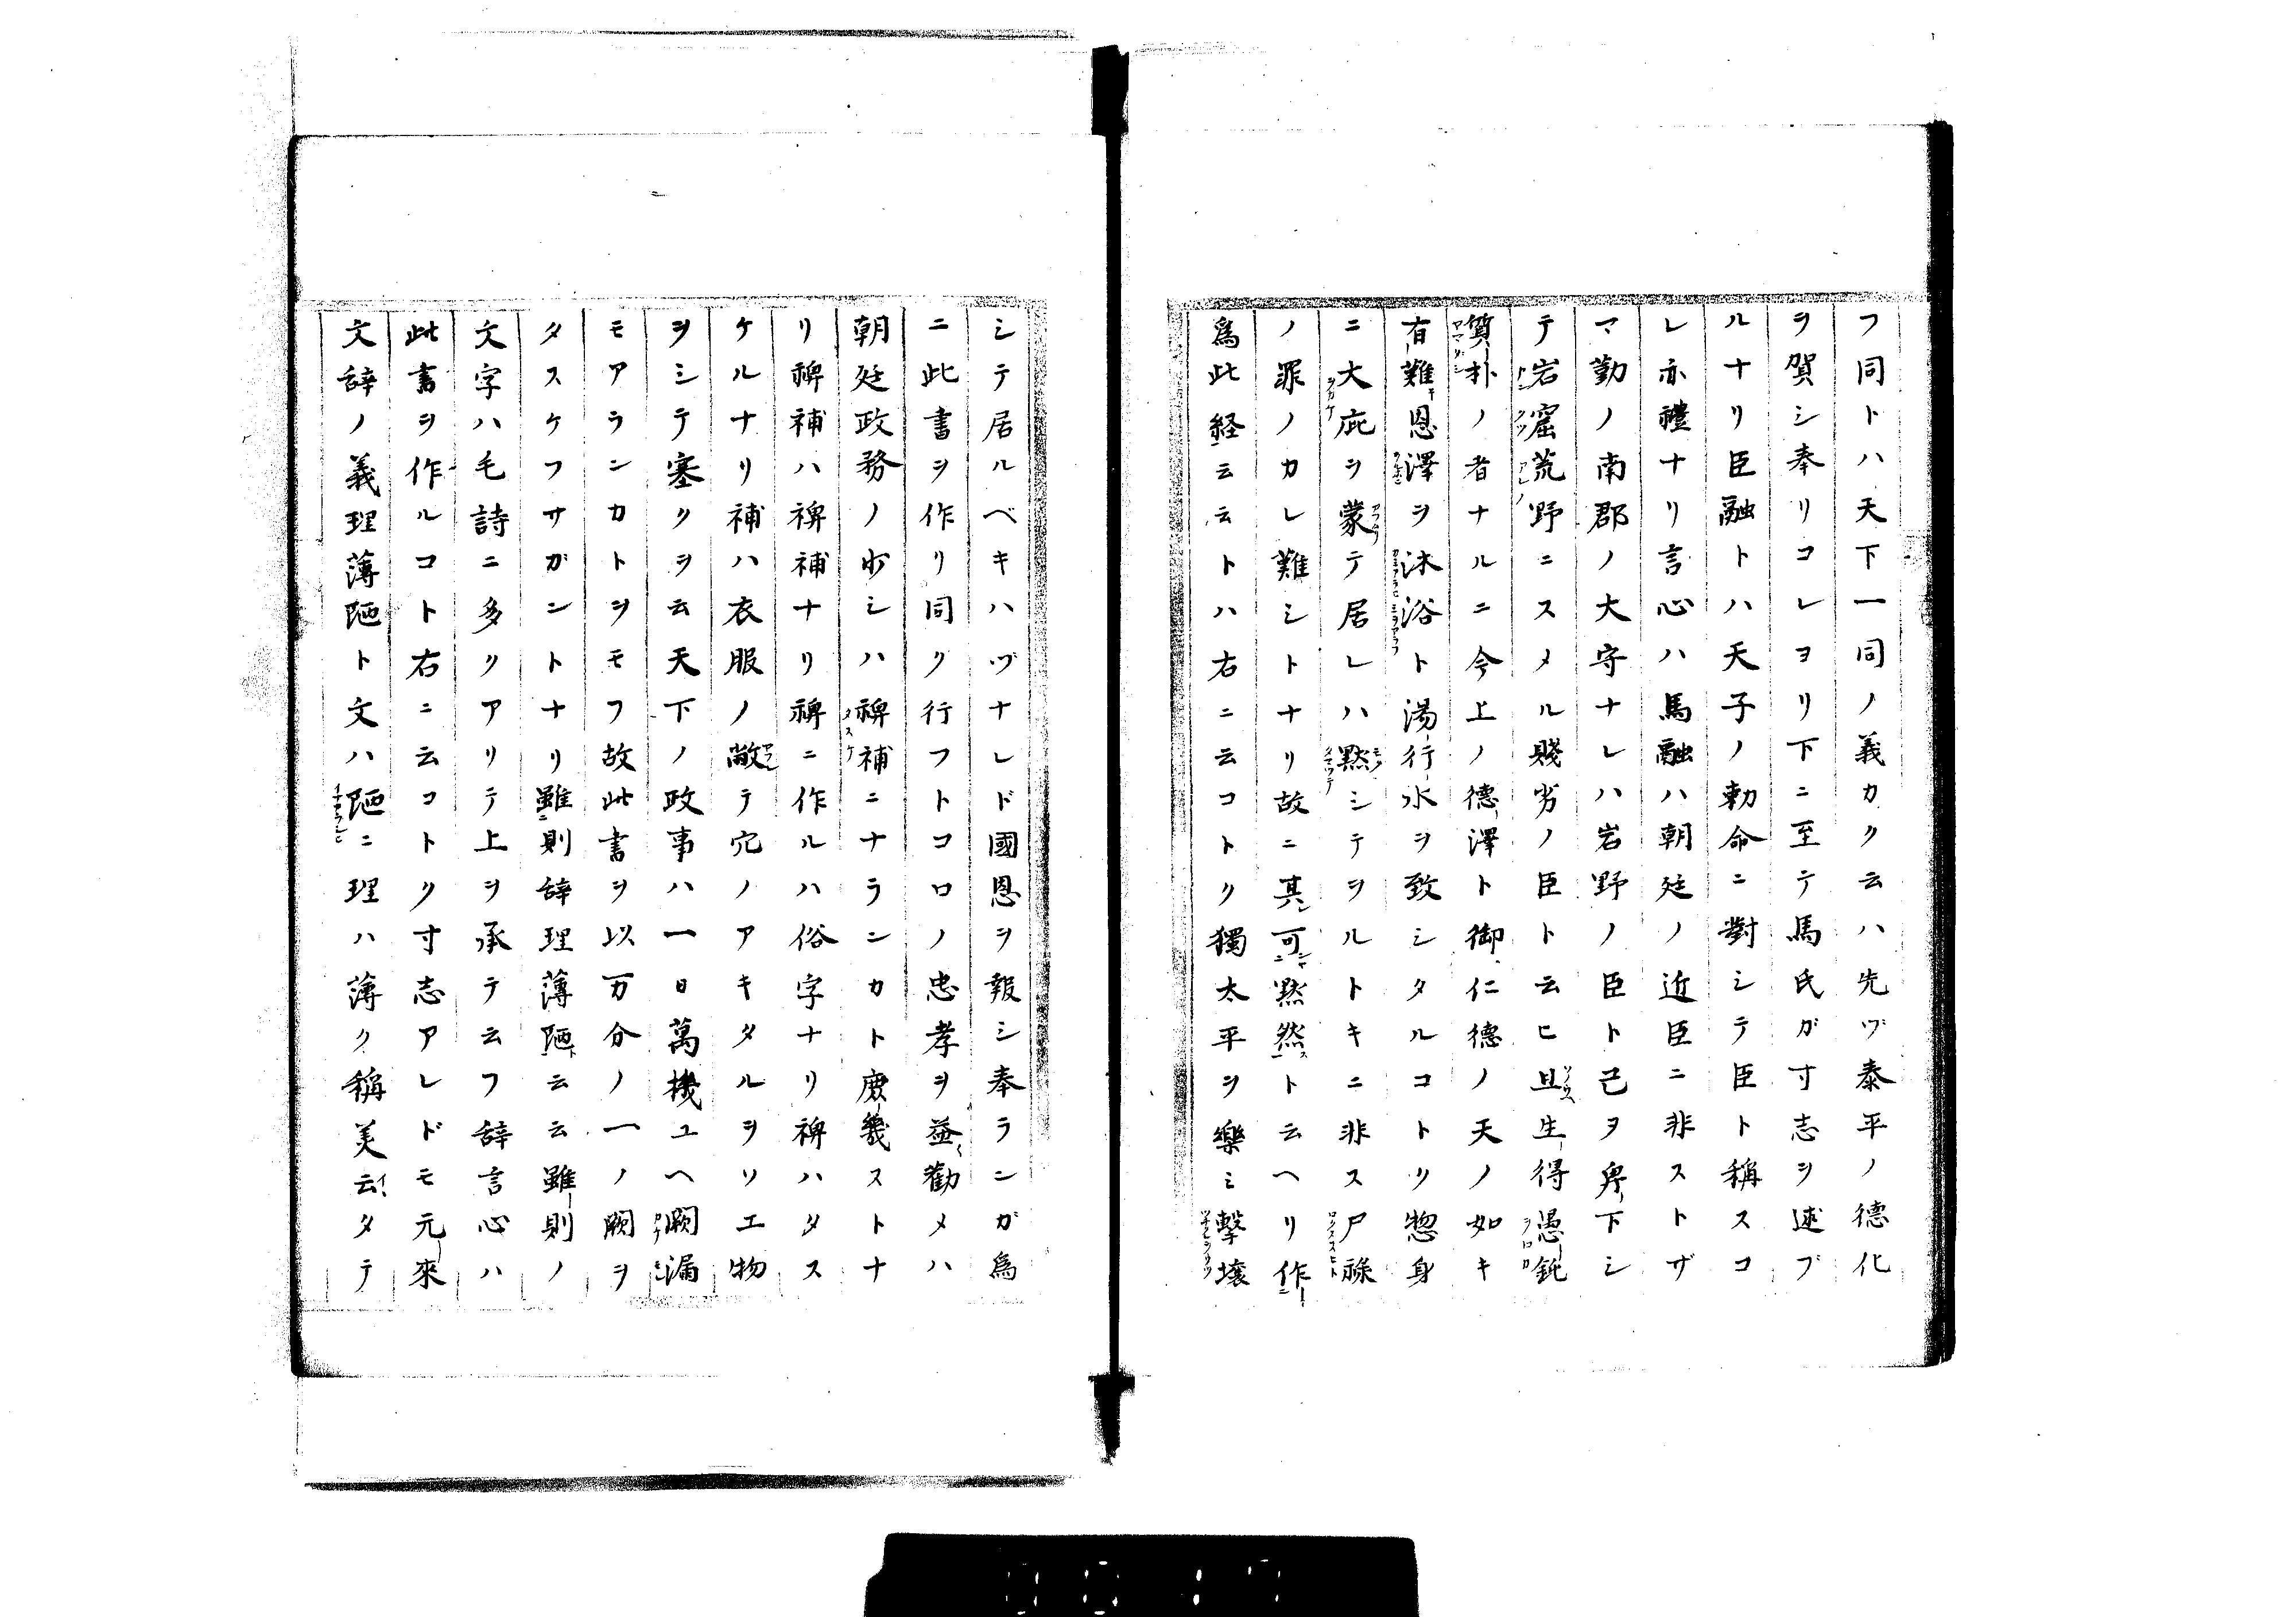 フ同トハ天下一同ノ義カク云ハ先ヅ泰平ノ德化
ヲ賀シ奉リコレヨリ下ニ至テ馬氏ガ寸志ヲ述ブ
ルナリ臣融トハ天子ノ勅命ニ對シテ臣ト稱スコ
レ亦禮ナリ言心ハ馬融ハ朝廷ノ近臣ニ非ストザ
マ勤ノ南郡ノ大守ナレハ岩野ノ臣ト己ヲ卑下シ
テ岩窟荒野ニスメル賤劣ノ臣ト云ヒ且生得愚鈍
質朴ノ者ナルニ今上ノ德澤ト御仁德ノ天ノ如キ
有難恩澤ヲ沐浴ト湯行水ヲ致シタルコトリ惣身
ニ大庇ヲ蒙テ居レハ黙シテヲルトキニ非ス尸祿
ノ罪ノカレ難シトナリ故ニ其可黙然ト云ヘリ作
爲此経云云トハ右ニ云コトク獨太平ヲ樂ミ擊壤
シテ居ルベキハヅナレド國恩ヲ報シ奉ランガ爲
ニ此書ヲ作リ同ク行フトコロノ忠孝ヲ益勸メハ
朝廷政務ノ少シハ裨補ニナランカト庶幾ストナ
リ稗補ハ裨補ナリ稗ニ作ルハ俗字ナリ裨ハタス
ケルナリ補ハ衣服ノ敝テ穴ノアキタルヲソエ物
ヲシテ塞クヲ云天下ノ政事ハ一日萬機ユヘ闕漏
モアランカトヲモフ故此書ヲ以万分ノ一ノ闕ヲ
タスケフサガントナリ雖則辞理薄陋云云雖則ノ
文字ハ毛詩ニ多クアリテ上ヲ承テ云フ辞言心ハ
此書ヲ作ルコト右ニ云コトク寸志アレドモ元來
文辞ノ義理薄陋ト文ハ陋ニ理ハ薄ク稱美云タテ